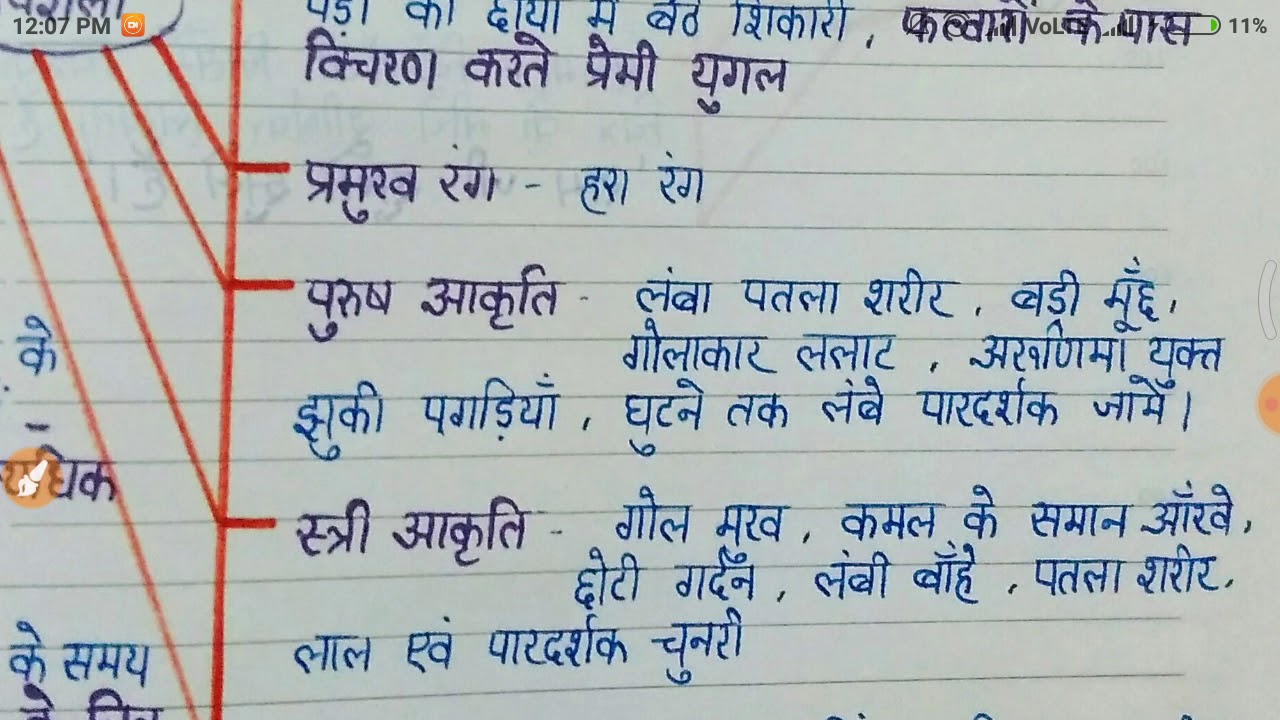 12:07 PM
11%
पेड़ों की छाया में बैठे शिकारी, फव्वारों के पास
विचरण करते प्रेमी युगल
प्रमुख रंग - हरा रंग
पुरुष आकृति - लंबा पतला शरीर, बडी मूँछे,
गोलाकार ललाट, अरूणिमा युक्त
झुकी पगड़ियाँ, घुटने तक लंबे पारदर्शक जामें।
स्त्री आकृति - गोल मुख, कमल के समान आँखे,
छोटी गर्दन, लंबी बाँहे, पतला शरीर,
लाल एवं पारदर्शक चुनरी
के
-
के समय